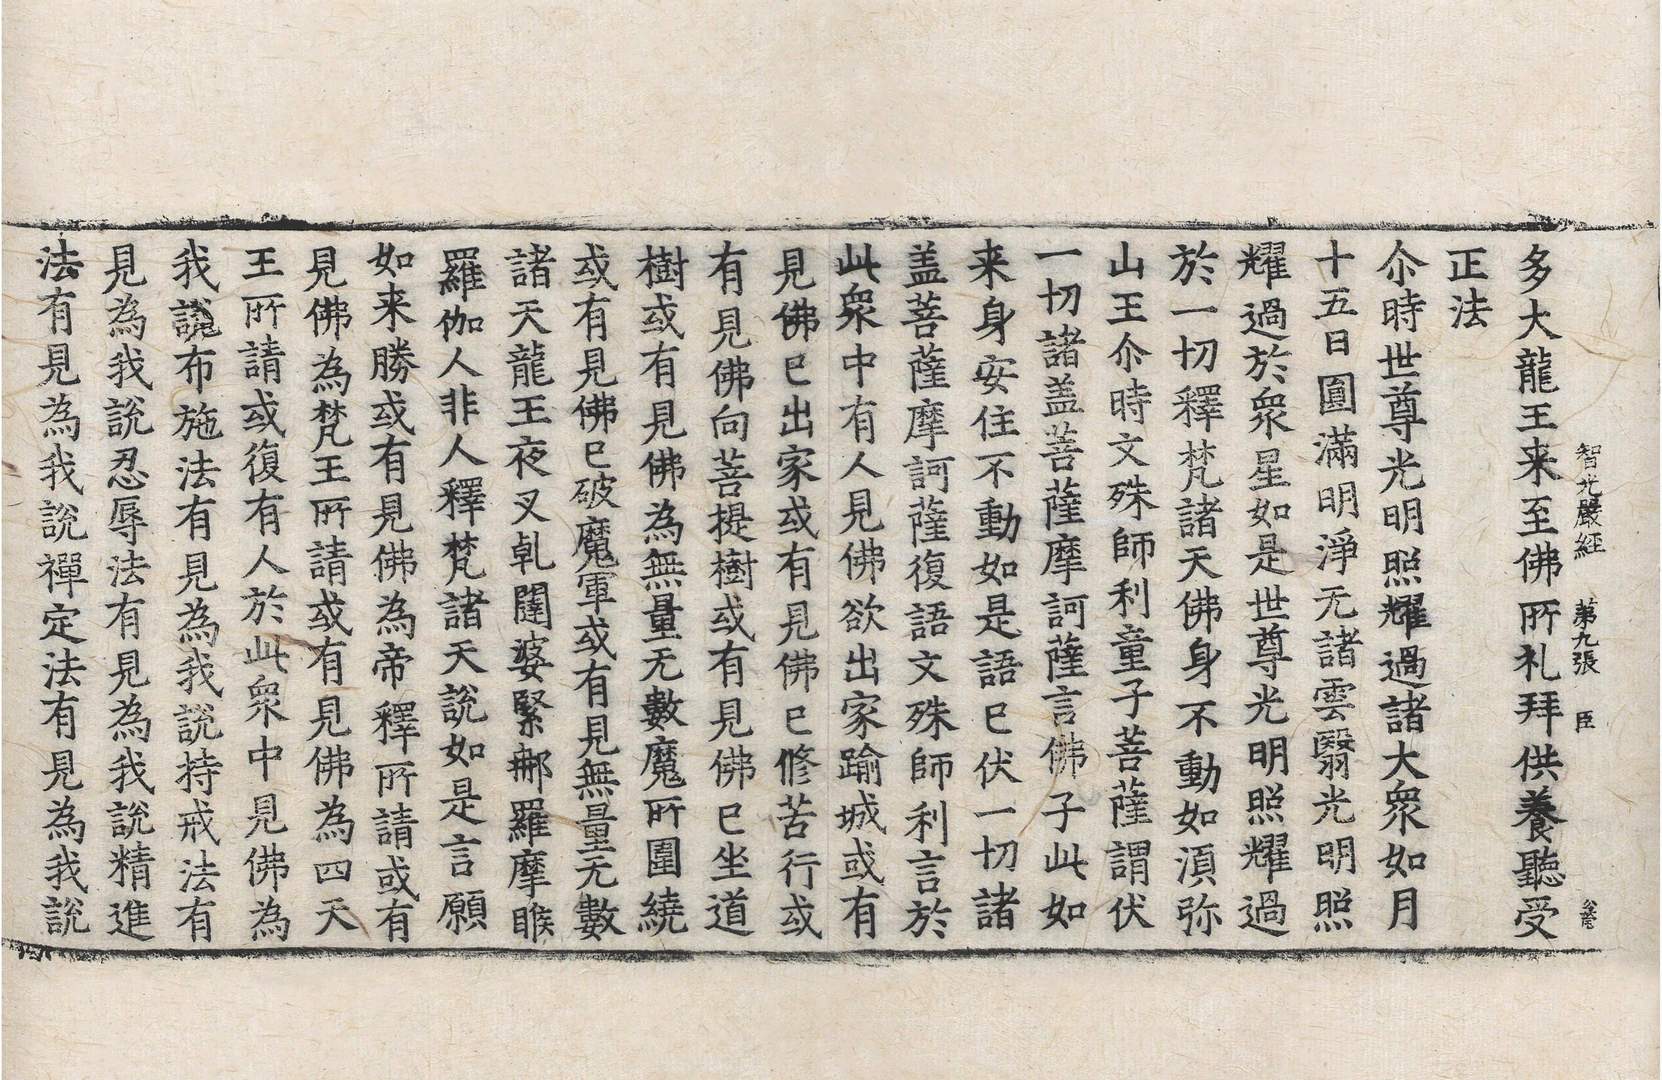 智光嚴經 第九張 臣
多大龍王来至佛所礼拜供養聽受
正法
尒時世尊光明照耀過諸大衆如月
十五日圓滿明淨无諸雲翳光明照
耀過於衆星如是世尊光明照耀過
於一切釋梵諸天佛身不動如湏弥
山王尒時文殊師利童子菩薩謂伏
一切諸盖菩薩摩訶薩言佛子此如
来身安住不動如是語已伏一切諸
盖菩薩摩訶薩復語文殊師利言於
此衆中有人見佛欲出家踰城或有
見佛已出家或有見佛已修苦行或
有見佛向菩提樹或有見佛已坐道
樹或有見佛為無量无數魔所圍繞
或有見佛已破魔軍或有見無量无數
諸天龍王夜叉乹闥婆緊那羅摩睺
羅伽人非人釋梵諸天說如是言願
如来勝或有見佛為帝釋所請或有
見佛為梵王所請或有見佛為四天
王所請或復有人於此衆中見佛為
我說布施法有見為我說持戒法有
見為我說忍辱法有見為我說精進
法有見為我說禪定法有見為我說